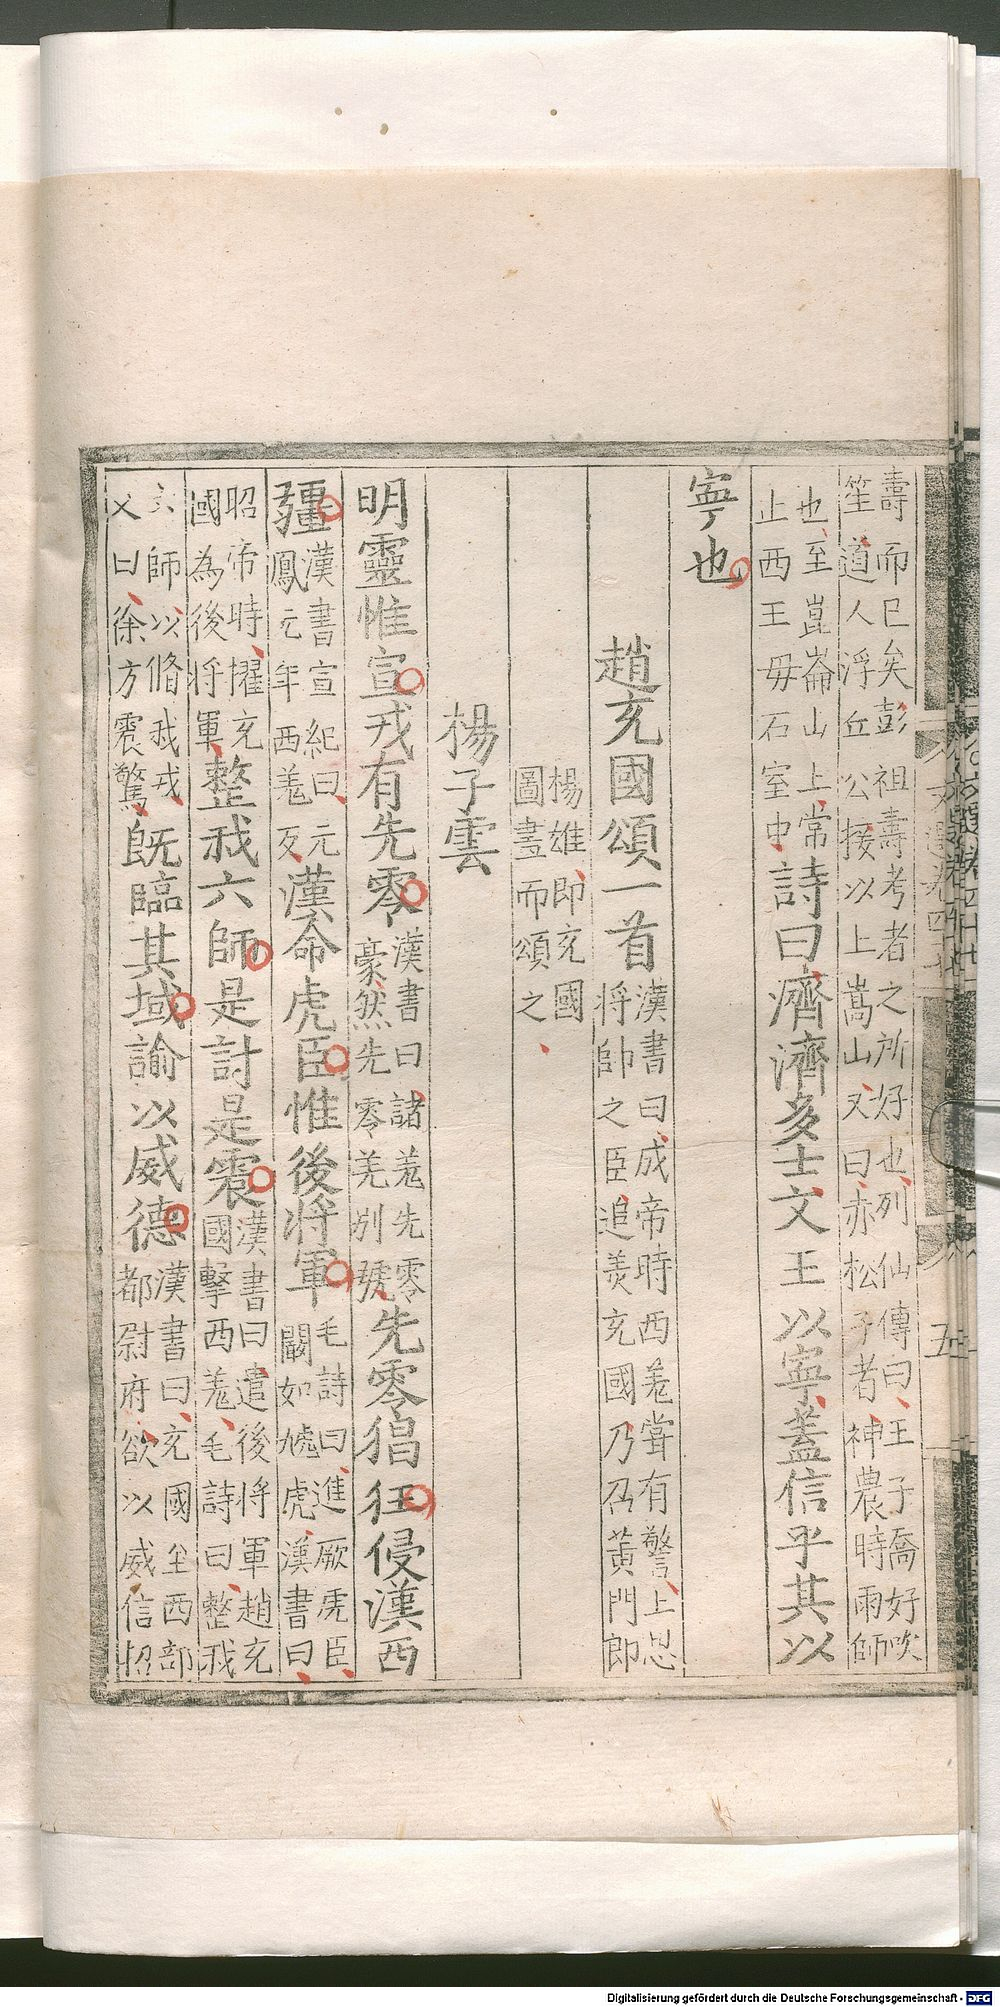 壽而已矣彭祖壽考者之所好也列仙傳曰王子喬好吹
笙道人浮丘公接以上嵩山又曰赤松子者神農時雨師
也至崑崙山上常
止西王母石室中詩曰濟濟多士文王以寧蓋信乎其以
寧也
趙充國頌一首漢書曰成帝時西羌嘗有警上思
將帥之臣追羙充國乃召黃門郎
楊雄即充國
圖畫而頌之
楊子雲
明靈惟宣戎有先零漢書曰諸羌先零
豪然先零羌別號先零猖狂侵漢西
疆漢書宣紀曰元
鳳元年西羌反漢命虎臣惟後將軍毛詩曰進厥虎臣
闞如虓虎漢書曰
昭帝時擢充
國為後將軍整我六師是討是震漢書曰遣後將軍趙充
國擊西羌毛詩曰整我
六師以脩我戎
又曰徐方震驚旣臨其域諭以威德漢書曰充國至西部
都尉府欲以威信招
五
Digitalisierung gefördert durch die Deutsche Forschungsgemeinschaft - DFG